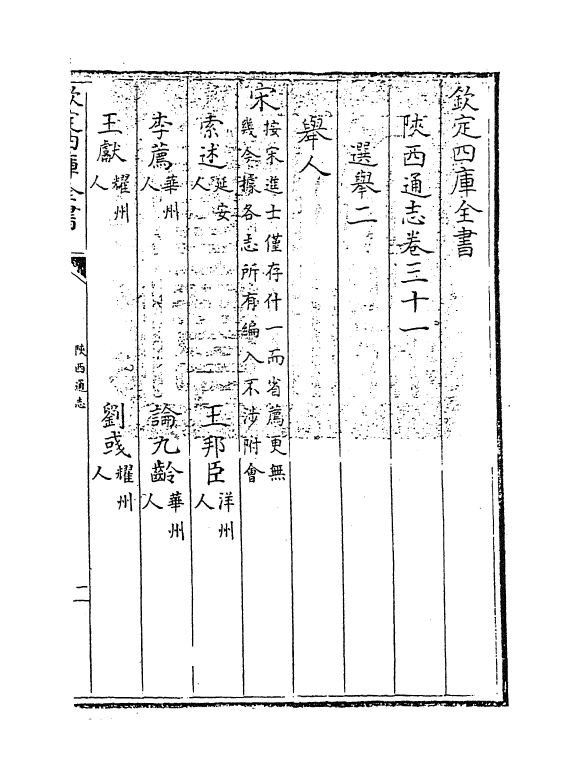 欽定四庫全書
陝西通志卷三十一
選舉二
舉人
宋按宋進士僅存什一而省薦更無
幾今據各志所有編入不涉附會
索述延安人
王邦臣洋州人
李薦華州人
論九齡華州人
王獻耀州人
劉彧耀州人
欽定四庫全書
陝西通志
二